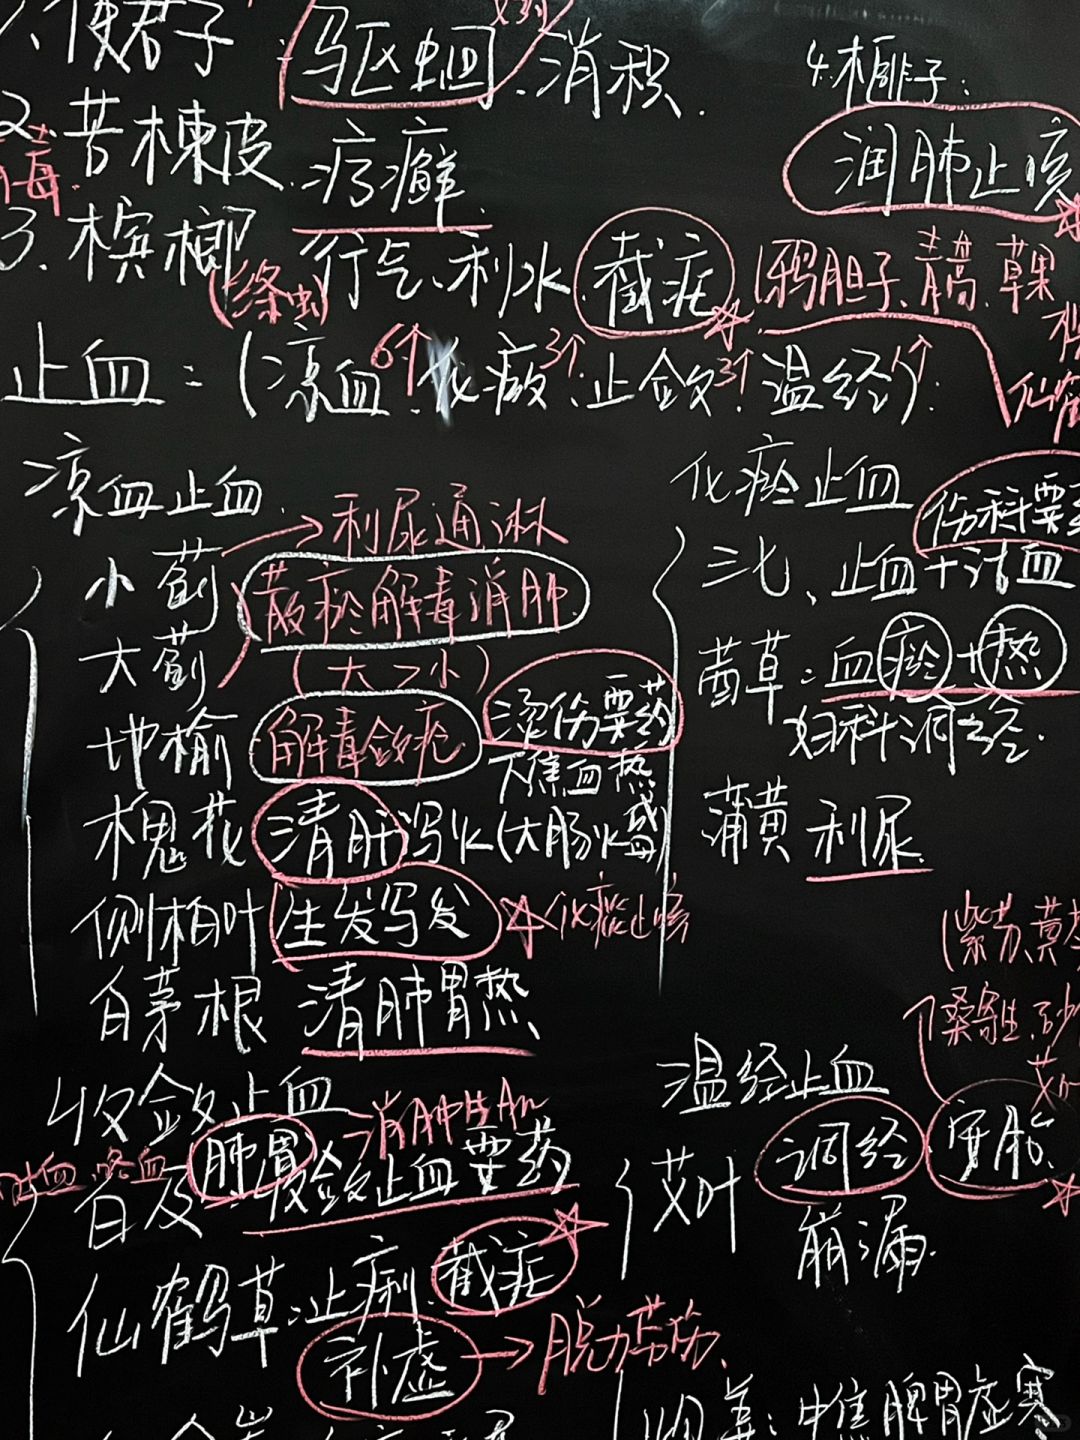 1.使君子 驱蛔、消积.
4.榧子:
润肺止咳
2.苦楝皮.疗癣.
毒.
3.槟榔 行气、利水.截疟 鸦胆子、青蒿.草果
(绦虫)
仙鹤
止血:(凉血6个.化瘀3个.止敛3个.温经1个.
凉血止血
小蓟→利尿通淋
散瘀解毒消肿.
大蓟 (大>小)
地榆 解毒敛疮 烫伤要药
下焦血热
槐花 清肝泻火(大肠火盛)
侧柏叶 生发乌发 化痰止咳
白茅根 清肺胃热.
化瘀止血
伤科要药
三七、止血+活血
茜草:血瘀+热
妇科调经.
蒲黄 利尿.
收敛止血
消肿生肌
吐血.咯血
白及 肺胃.收敛止血要药
仙鹤草:止痢.截疟
补虚→脱力劳伤.
(紫苏、黄芩
桑寄生.砂
艾叶
温经止血
艾叶 调经 安胎.
崩漏.
炮姜:中焦脾胃虚寒